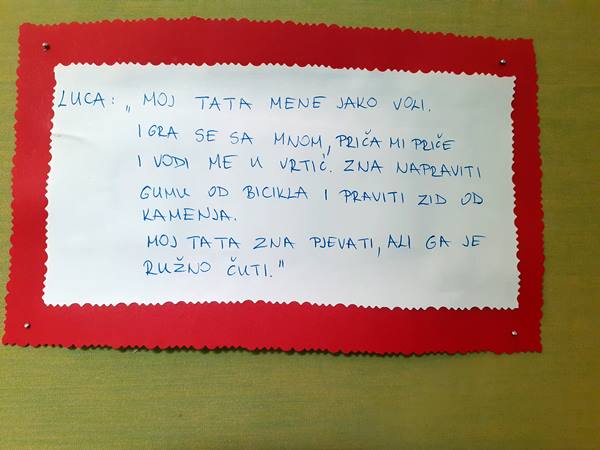 LUCA: „ MOJ TATA MENE JAKO VOLI.
IGRA SE SA MNOM, PRIČA MI PRIČE
I VODI ME U VRTIĆ. ZNA NAPRAVITI
GUMU OD BICIKLA I PRAVITI ZID OD
KAMENJA.
MOJ TATA ZNA PJEVATI, ALI GA JE
RUŽNO ČUTI."